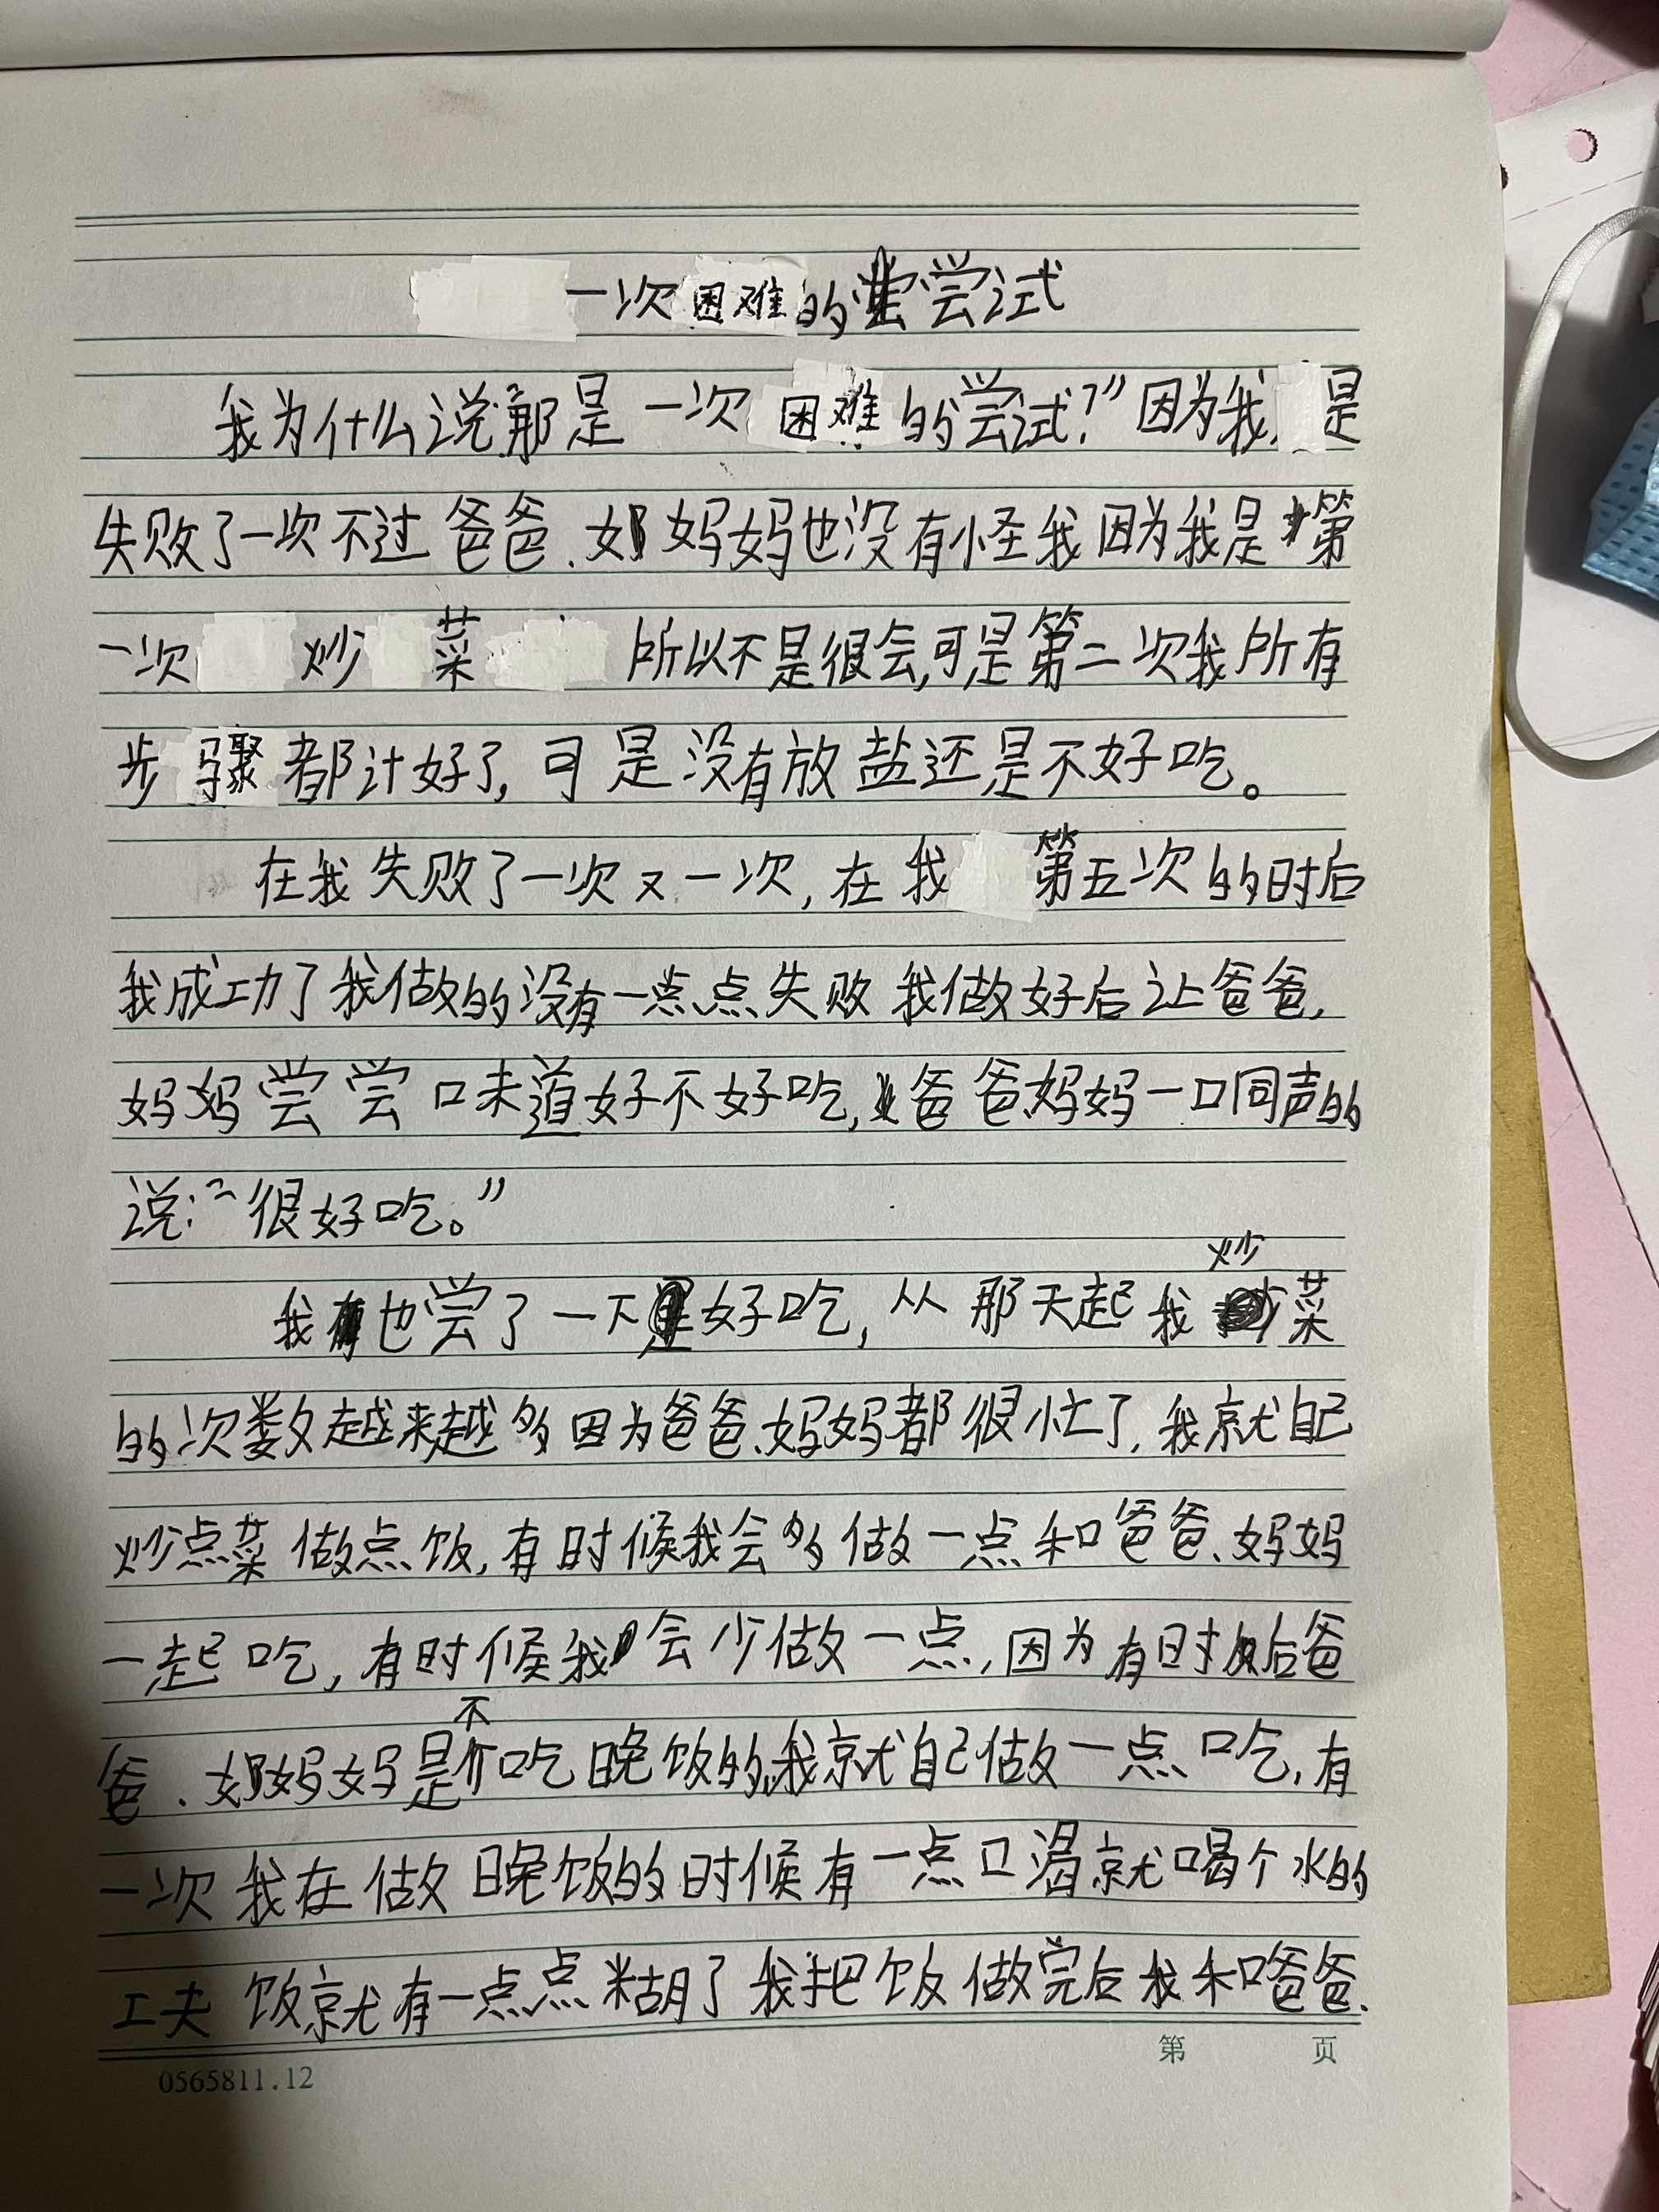 一次困难的尝试
我为什么说“那是一次困难的尝试?”因为我是
失败了一次不过爸爸、妈妈也没有怪我因为我是第
一次炒菜所以不是很会,可是第二次我所有
步骤都计好了,可是没有放盐还是不好吃。
在我失败了一次又一次,在我第五次的时后
我成功了我做的没有一点点失败我做好后让爸爸,
妈妈尝尝口未道好不好吃,爸爸妈妈一口同声的
说:“很好吃。”
我也尝了一下好吃,从那天起我炒菜
的次数越来越多因为爸爸、妈妈都很忙了,我就自己
炒点菜做点饭,有时候我会多做一点和爸爸、妈妈
一起吃,有时候我会少做一点,因为有时后爸
爸、妈妈是不吃晚饭的,我就自己做一点吃,有
一次我在做晚饭的时候有一点口渴就喝个水的
工夫饭就有一点点糊了我把饭做完后我和爸爸、
第 页
0565811.12